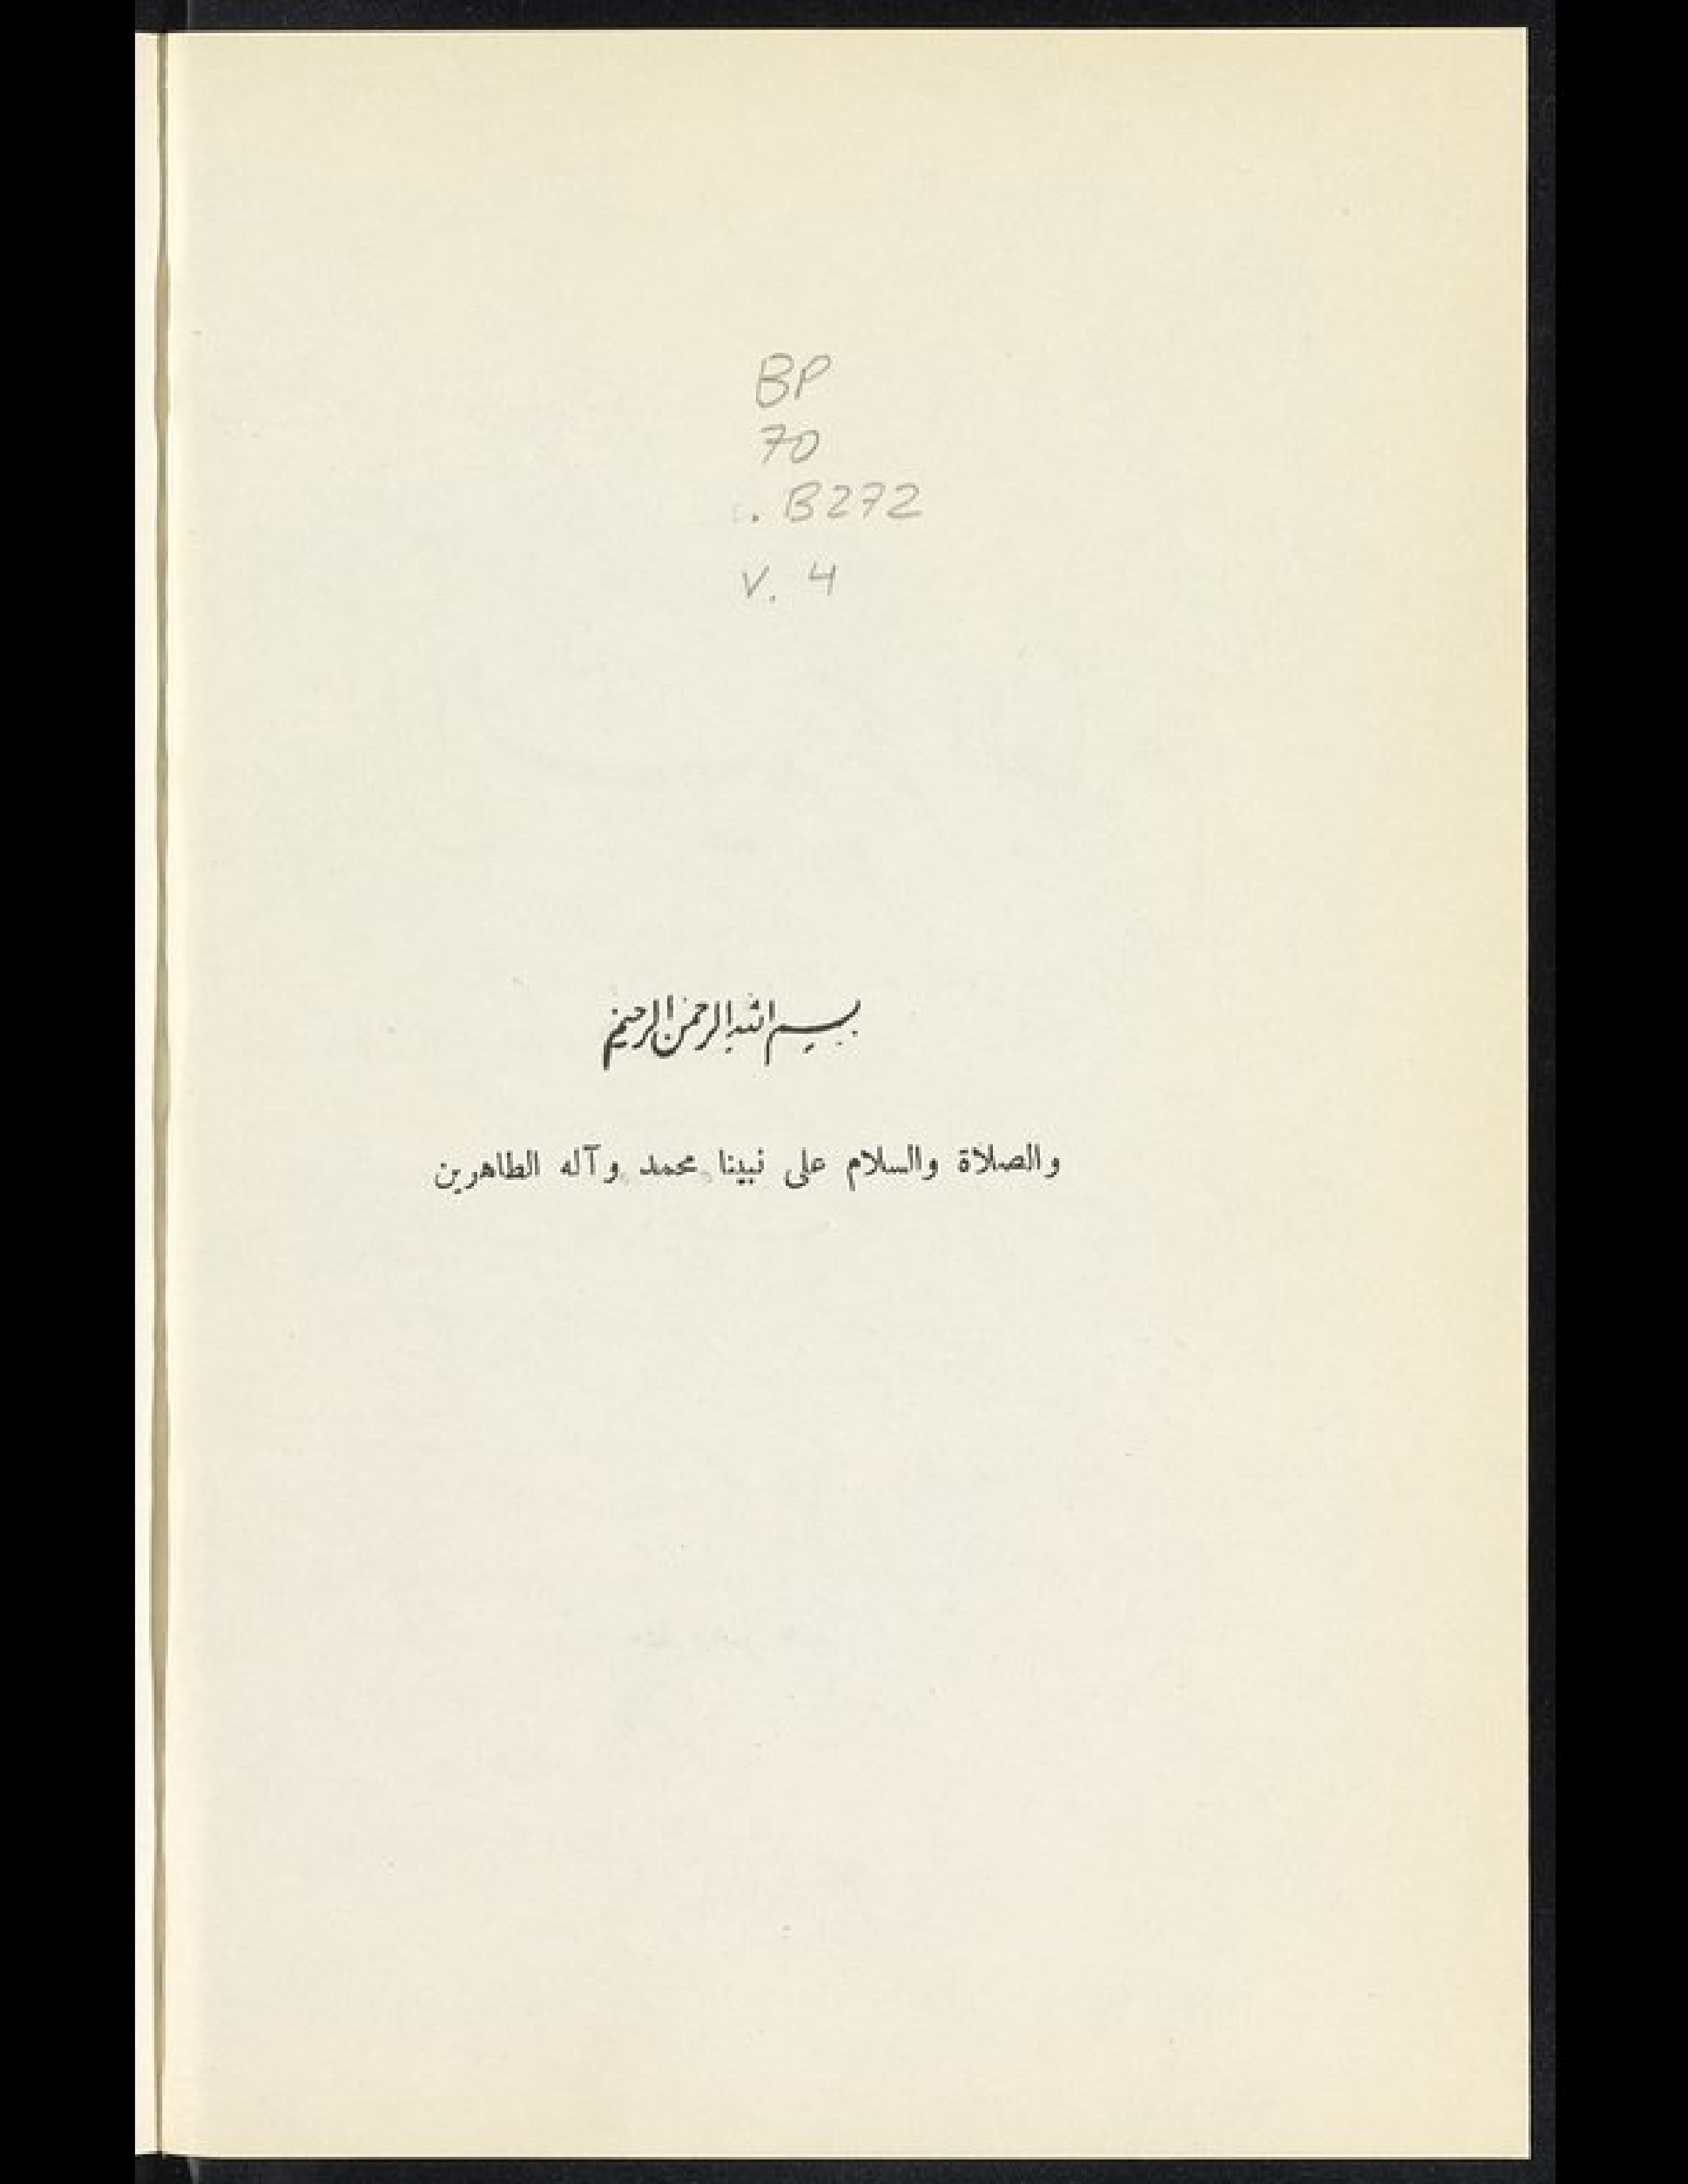 BP
70
.B272
V. 4
بسم الله الرحمن الرحيم
والصلاة والسلام على نبينا محمد وآله الطاهرين